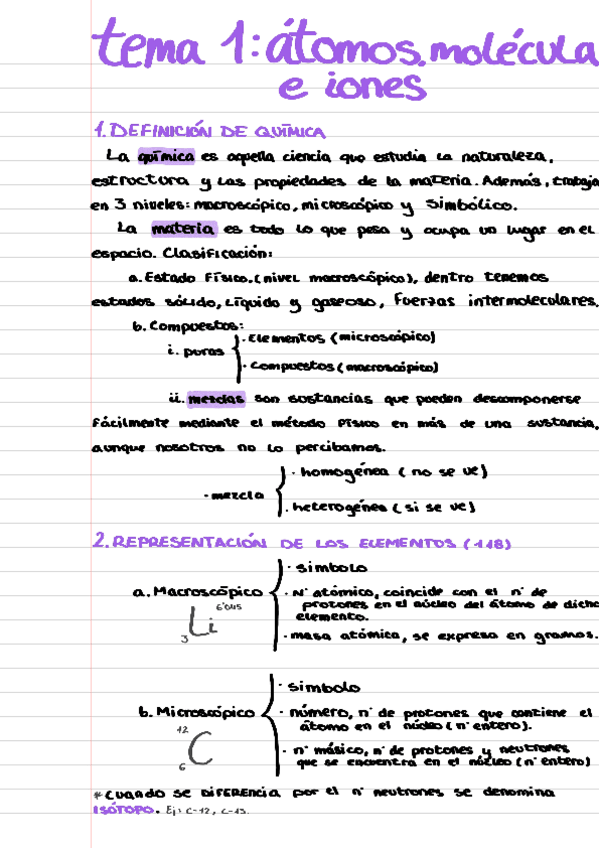 tema 1: átomos, molécula
e iones
1. DEFINICIÓN DE QUÍMICA
La química es aquella ciencia que estudia la naturaleza,
estructura y las propiedades de la materia. Además, trabaja
en 3 niveles: macroscópico, microscópico y simbólico.
La materia es todo lo que pesa y ocupa un lugar en el
espacio. Clasificación:
a. Estado Físico. (nivel macroscópico), dentro tenemos
estados sólido, líquido y gaseoso, Fuerzas intermoleculares.
b. Compuestos:
· Elementos (microscópico)
i. puras
· Compuestos (macroscópico)
ii. mezclas son sustancias que pueden descomponerse
fácilmente mediante el método Físico en más de una sustancia,
aunque nosotros no lo percibamos.
· homogénea (no se ve)
· mezcla
· heterogénea (si se ve)
2. REPRESENTACIÓN DE LOS ELEMENTOS (118)
· simbolo
a. Macroscópico
· N° atómico, coincide con el n° de
protones en el núcleo del átomo de dicho
elemento.
· masa atómica, se expresa en gramos.
3 Li
· simbolo
b. Microscópico
· número, n° de protones que contiene el
átomo en el núcleo (n° entero).
· n° másico, n° de protones y neutrones
que se encuentra en el núcleo (n° entero)
12
C
6
* CUANDO SE DIFERENCIA por el n° neutrones se denomina
ISÓTOPO. Ej: C-12, C-13.